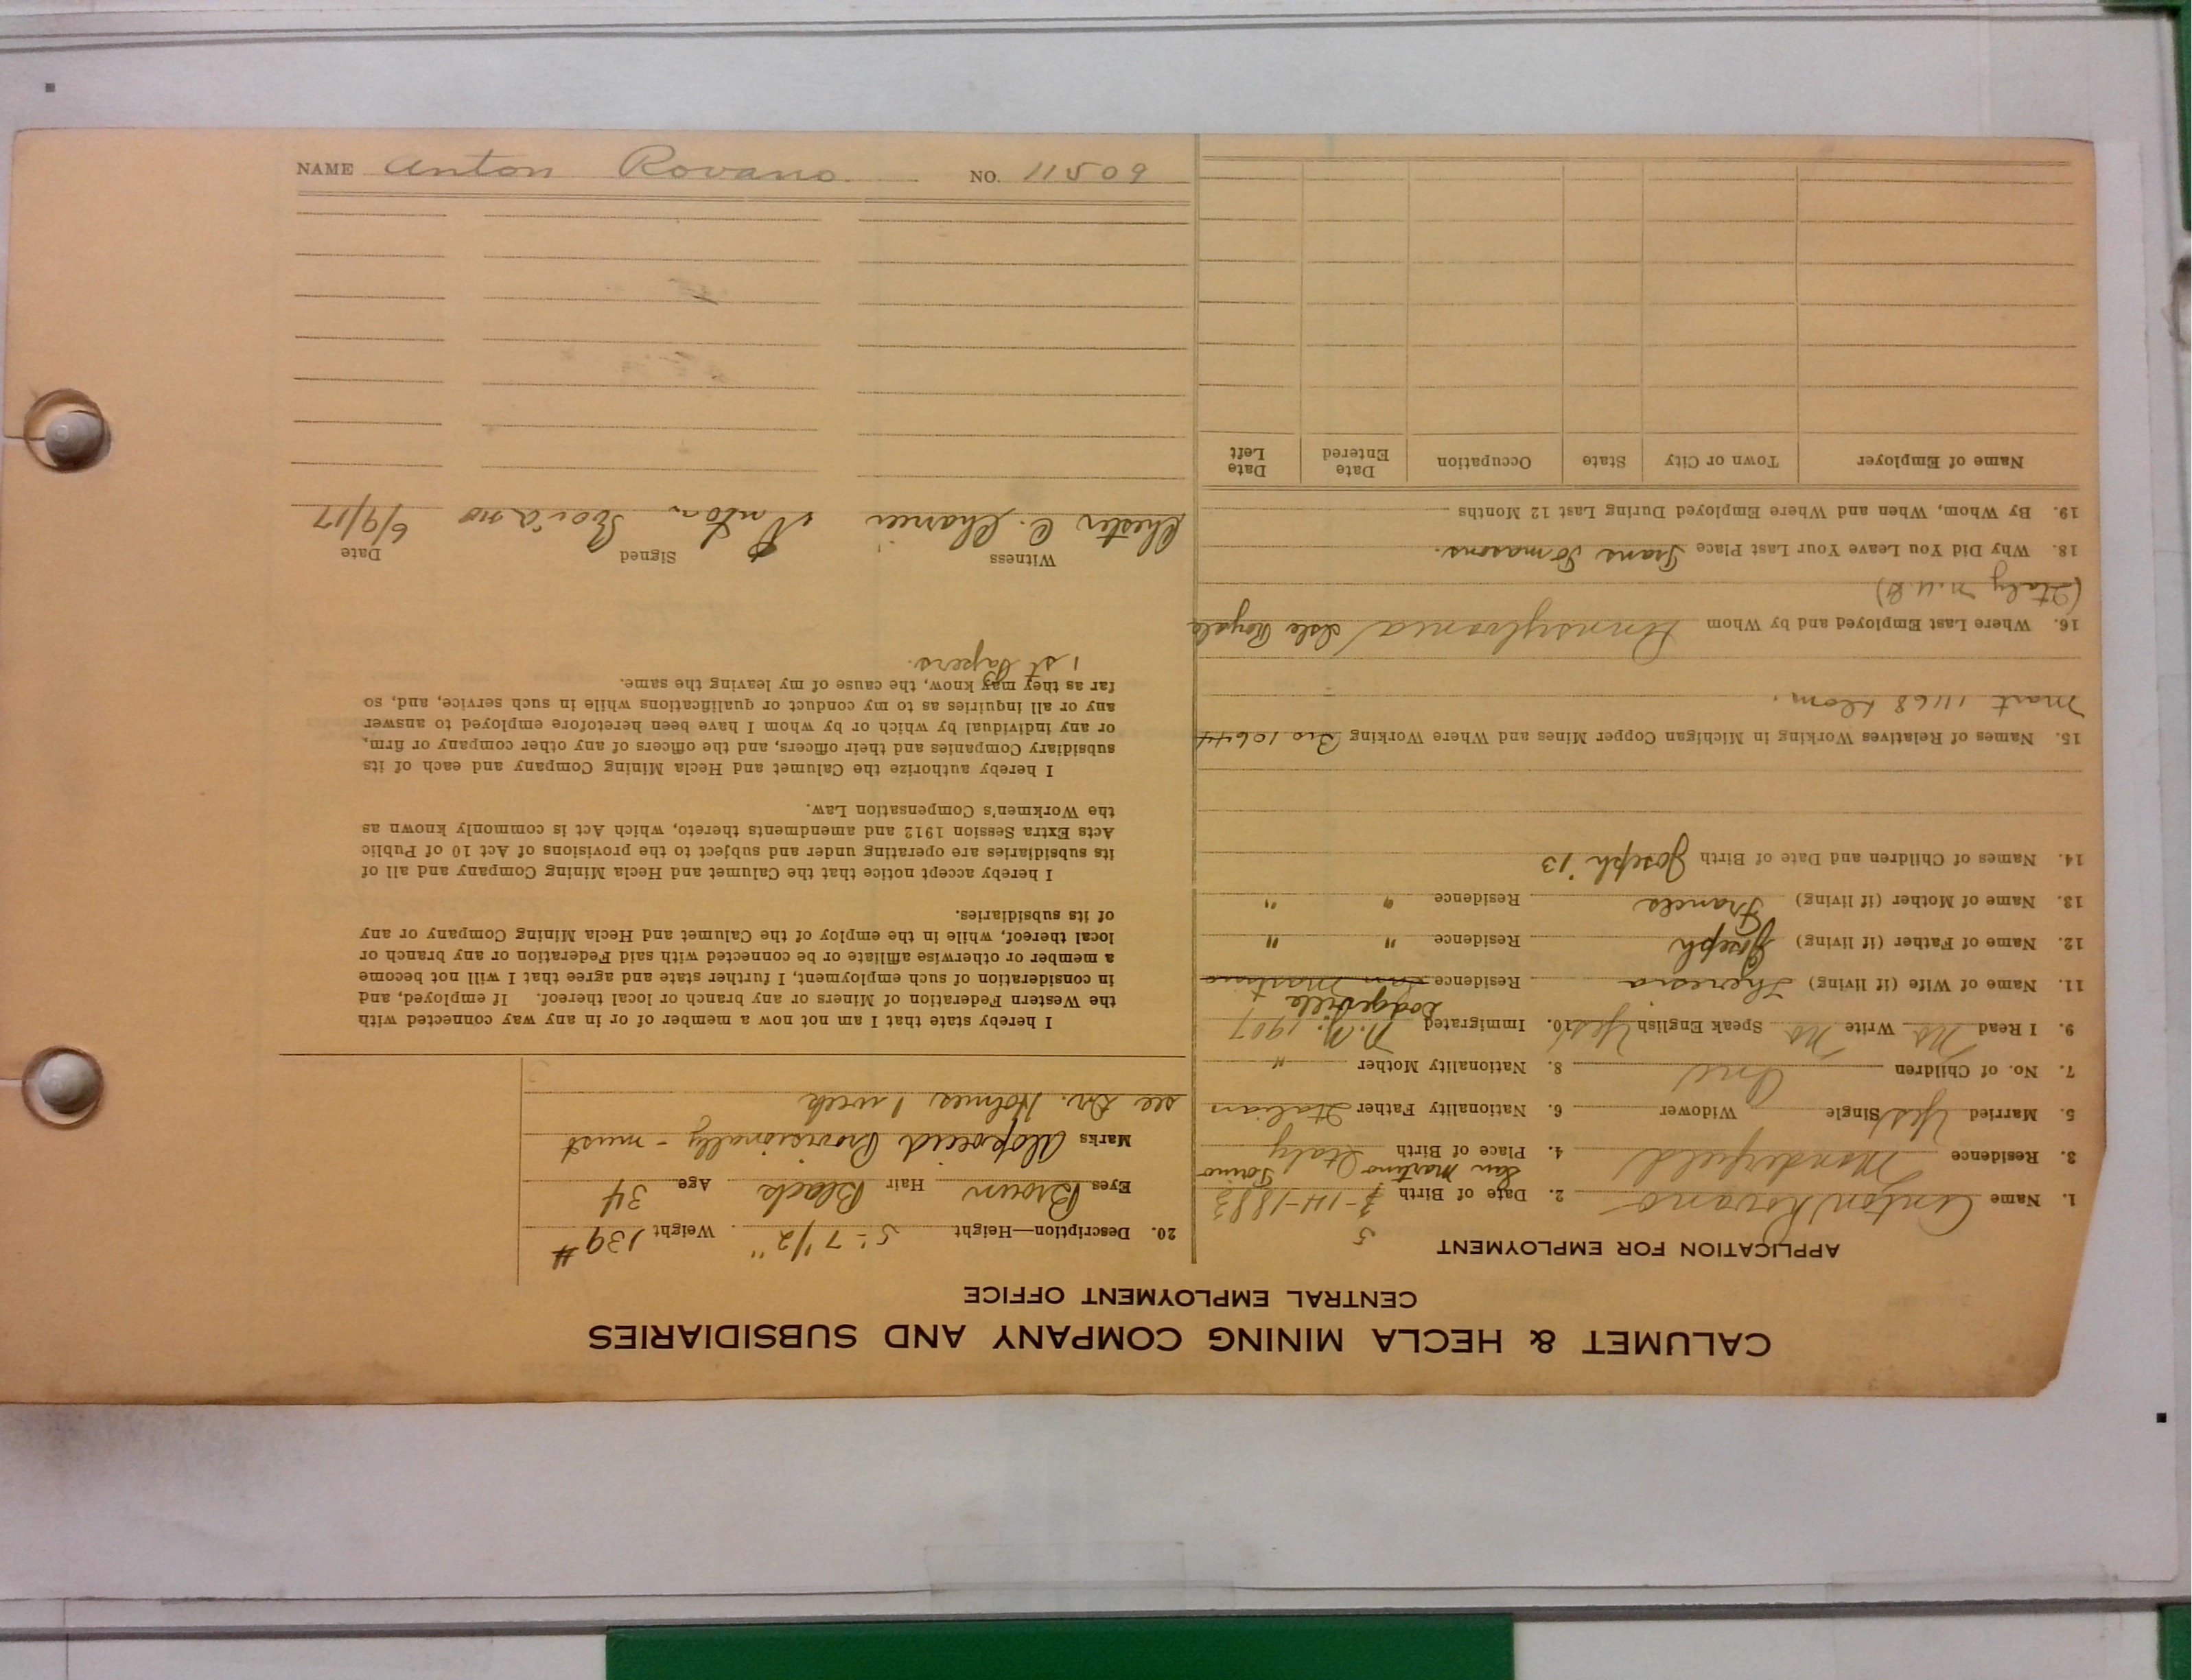 CALUMET & HECLA MINING COMPANY AND SUBSIDIARIES
CENTRAL EMPLOYMENT OFFICE
APPLICATION FOR EMPLOYMENT
5
1. Name Anton Rovano 2. Date of Birth 3-14-1883
San Martino Torino
3. Residence Manderfield 4. Place of Birth Italy
5. Married Yes Single Widower 6. Nationality Father Italian
7. No. of Children One 8. Nationality Mother "
9. I Read No Write No Speak English Yes 10. Immigrated N.Y. 1907
Dodgeville
11. Name of Wife (if living) Theresa Residence San Martino
12. Name of Father (if living) Joseph Residence " "
13. Name of Mother (if living) Frances Residence " "
14. Names of Children and Date of Birth Joseph '13
15. Names of Relatives Working in Michigan Copper Mines and Where Working Bro 10644
Mart 11168
16. Where Last Employed and by Whom Pennsylvania / Isle Royale
(Italy
18. Why Did You Leave Your Last Place Trans Tomasons.
19. By Whom, When and Where Employed During Last 12 Months
Name of Employer Town or City State Occupation Date Entered Date Left
20. Description—Height 5'-7 1/2" Weight 139 #
Eyes Brown Hair Black Age 34
Marks Provisionally - must
see Dr. Holmes 1 week
I hereby state that I am not now a member of or in any way connected with
the Western Federation of Miners or any branch or local thereof. If employed, and
in consideration of such employment, I further state and agree that I will not become
a member or otherwise affiliate or be connected with said Federation or any branch or
local thereof, while in the employ of the Calumet and Hecla Mining Company or any
of its subsidiaries.
I hereby accept notice that the Calumet and Hecla Mining Company and all of
its subsidiaries are operating under and subject to the provisions of Act 10 of Public
Acts Extra Session 1912 and amendments thereto, which Act is commonly known as
the Workmen's Compensation Law.
I hereby authorize the Calumet and Hecla Mining Company and each of its
subsidiary Companies and their officers, and the officers of any other company or firm,
or any individual by which or by whom I have been heretofore employed to answer
any or all inquiries as to my conduct or qualifications while in such service, and, so
far as they may know, the cause of my leaving the same.
1st Papers.
Witness Signed Date
Chester C. Anton Rovano 6/9/17
NAME Anton Rovano. NO. 11509